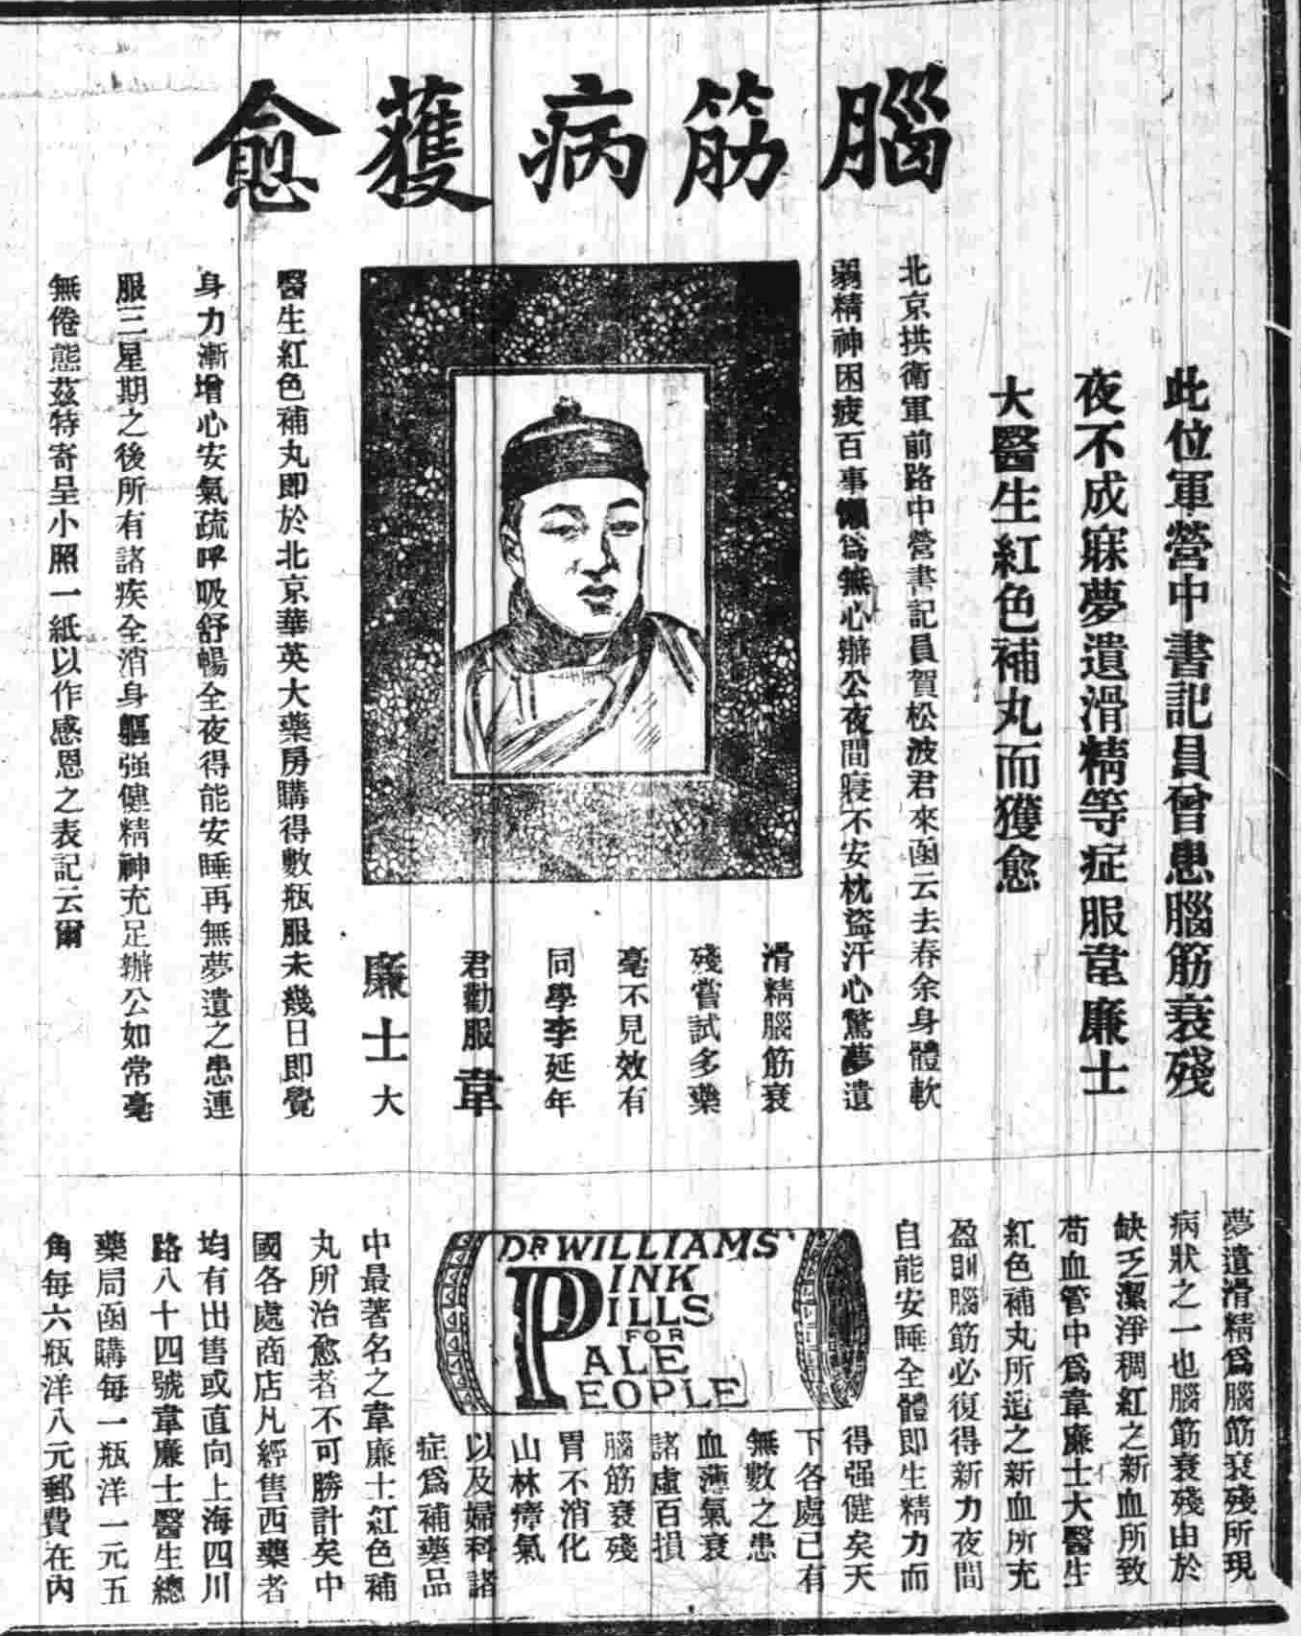 腦筋病獲愈
此位軍營中書記員曾患腦筋衰殘
夜不成寐夢遺滑精等症服韋廉士
大醫生紅色補丸而獲愈
北京拱衛軍前路中營書記員賀松波君來函云去春余身體軟
弱精神困疲百事懶爲無心辦公夜間寢不安枕盜汗心驚夢遺
滑精腦筋衰
殘嘗試多藥
毫不見效有
同學李延年
君勸服韋
廉士大
醫生紅色補丸即於北京華英大藥房購得數瓶服未幾日即覺
身力漸增心安氣疏呼吸舒暢全夜得能安睡再無夢遺之患連
服三星期之後所有諸疾全消身軀強健精神充足辦公如常毫
無倦態茲特寄呈小照一紙以作感恩之表記云爾
夢遺滑精爲腦筋衰殘所現
病狀之一也腦筋衰殘由於
缺乏潔淨稠紅之新血所致
苟血管中爲韋廉士大醫生
紅色補丸所造之新血所充
盈則腦筋必復得新力夜間
自能安睡全體即生精力而
得强健矣天
下各處已有
無數之患
血薄氣衰
諸虛百損
腦筋衰殘
胃不消化
山林瘴氣
以及婦科諸
症爲補藥品
中最著名之韋廉士紅色補
丸所治愈者不可勝計矣中
國各處商店凡經售西藥者
均有出售或直向上海四川
路八十四號韋廉士醫生總
藥局函購每一瓶洋一元五
角每六瓶洋八元郵費在內
DR WILLIAMS'
PINK
PILLS
FOR
PALE
PEOPLE